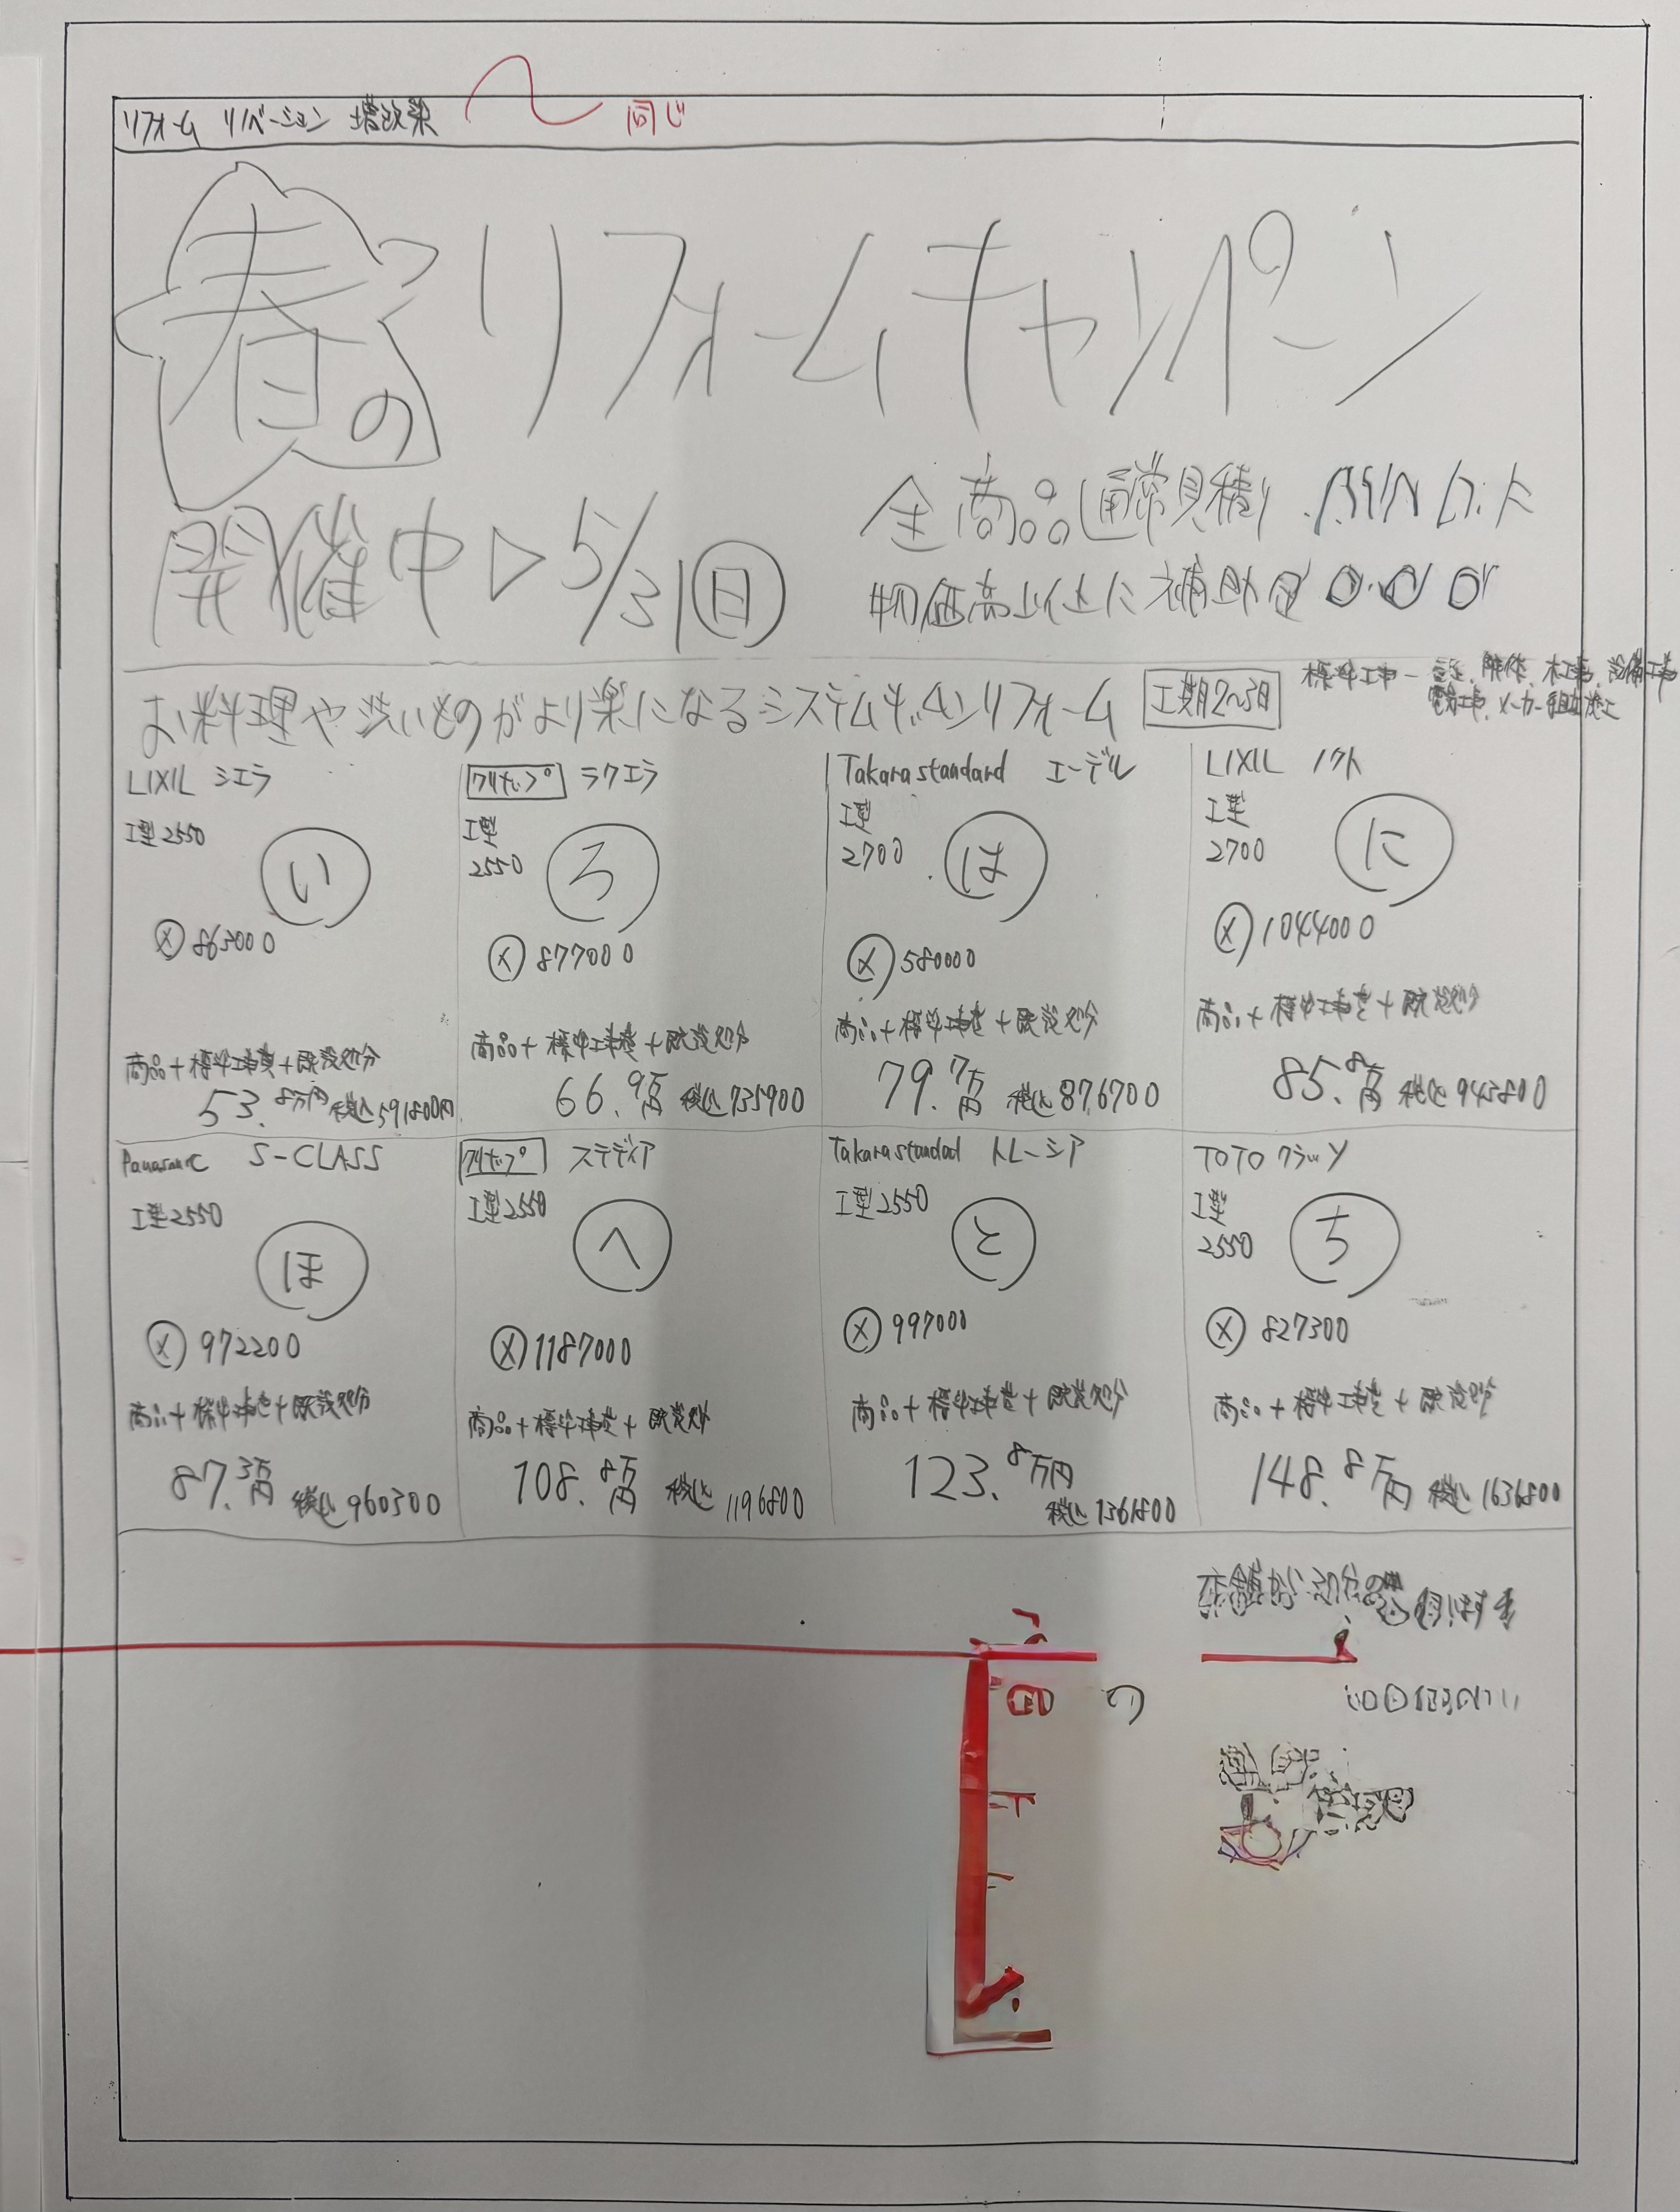 リフォーム リノベーション 増改築
同じ
春の リフォームキャンペーン
開催中▷5/31(日)
全商品通常見積り
物価高 に補助
お料理や洗いものがより楽になるシステムキッチンリフォーム 工期2〜3日
標準工事― 解体、木工事、設備工事
電気工事、メーカー組立施工
LIXIL シエラ
I型2550
い
メ 863000
商品+標準工事費+既設処分
53.8万円 税込591800円
クリナップ ラクエラ
I型
2550
ろ
メ 877000
商品+標準工事費+既設処分
66.9万円 税込735900
Takara standard エーデル
I型
2700
は
メ 580000
商品+標準工事費+既設処分
79.7万円 税込876700
LIXIL ノクト
I型
2700
に
メ 1044000
商品+標準工事費+既設処分
85.8万円 税込943800
Panasonic S-CLASS
I型2550
ほ
メ 972200
商品+標準工事費+既設処分
87.3万円 税込960300
クリナップ ステディア
I型2550
へ
メ 1187000
商品+標準工事費+既設処分
108.8万円 税込1196800
Takara standad トレーシア
I型2550
と
メ 997000
商品+標準工事費+既設処分
123.8万円
税込1361800
TOTO クラッソ
I型
2550
ち
メ 827300
商品+標準工事費+既設処分
148.8万円 税込1636800
店舗から30分の
の